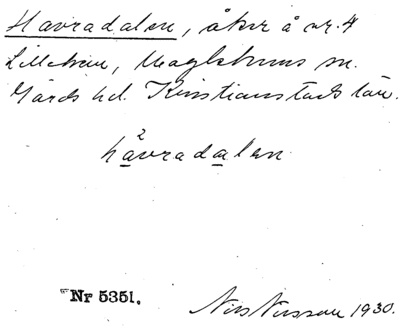 Havradalen, åker å nr. 4
Lillehem, Maglehems sn.
Gärds hd. Kristianstads län.
2
håvradalen
Nr 5351.
Nils Nilsson 1930.